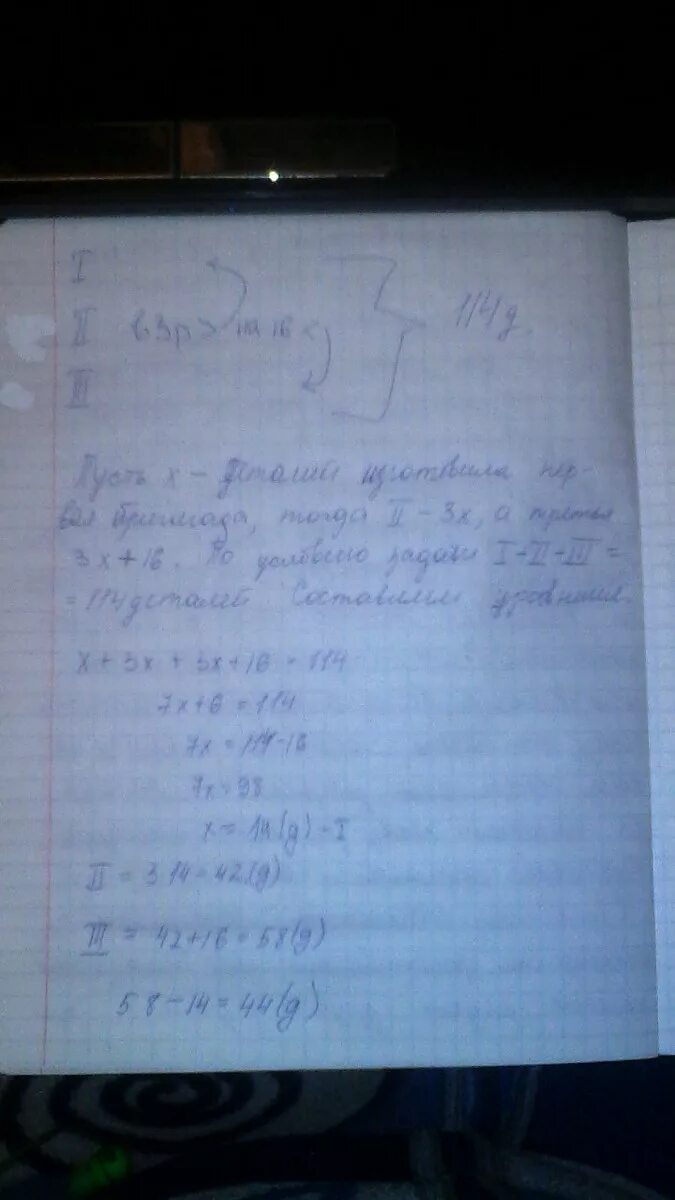 I
II в 3р > на 16 <
III
114 д.
Пусть x – деталей изготовила пер-
вая бригада, тогда II – 3x, а третья
3x + 16. По условию задачи I - II - III =
= 114 деталей. Составляем
x + 3x + 3x + 16 = 114
7x + 6 = 114
7x = 114 - 16
7x = 98
x = 14 (д) - I
II = 3 14 = 42 (д)
III = 42 + 16 = 58 (д)
58 - 14 = 44 (д)